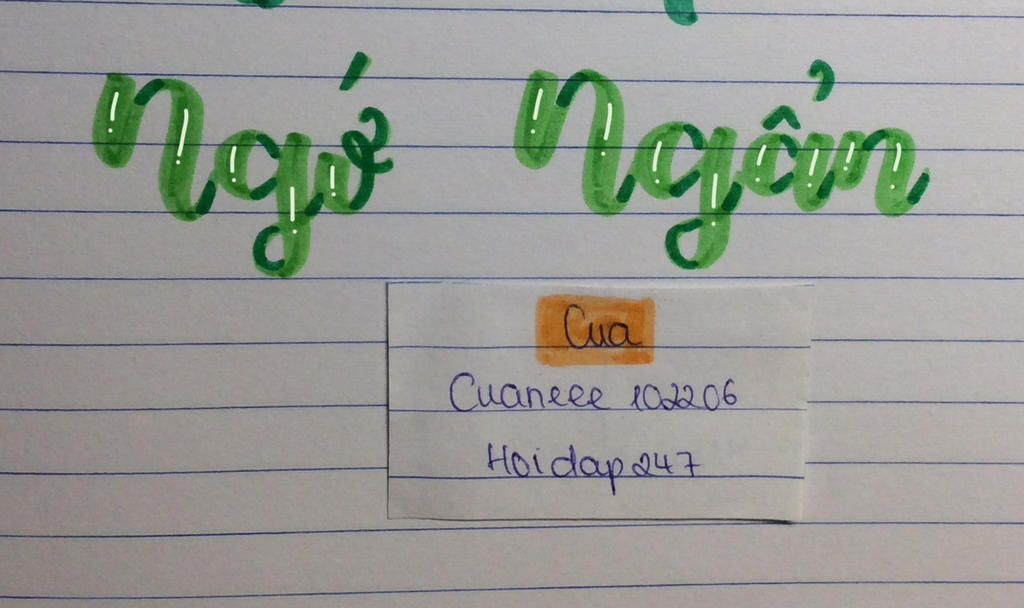 Ngớ Ngẩn
Cua
Cuaneee 102206
Hoidap247